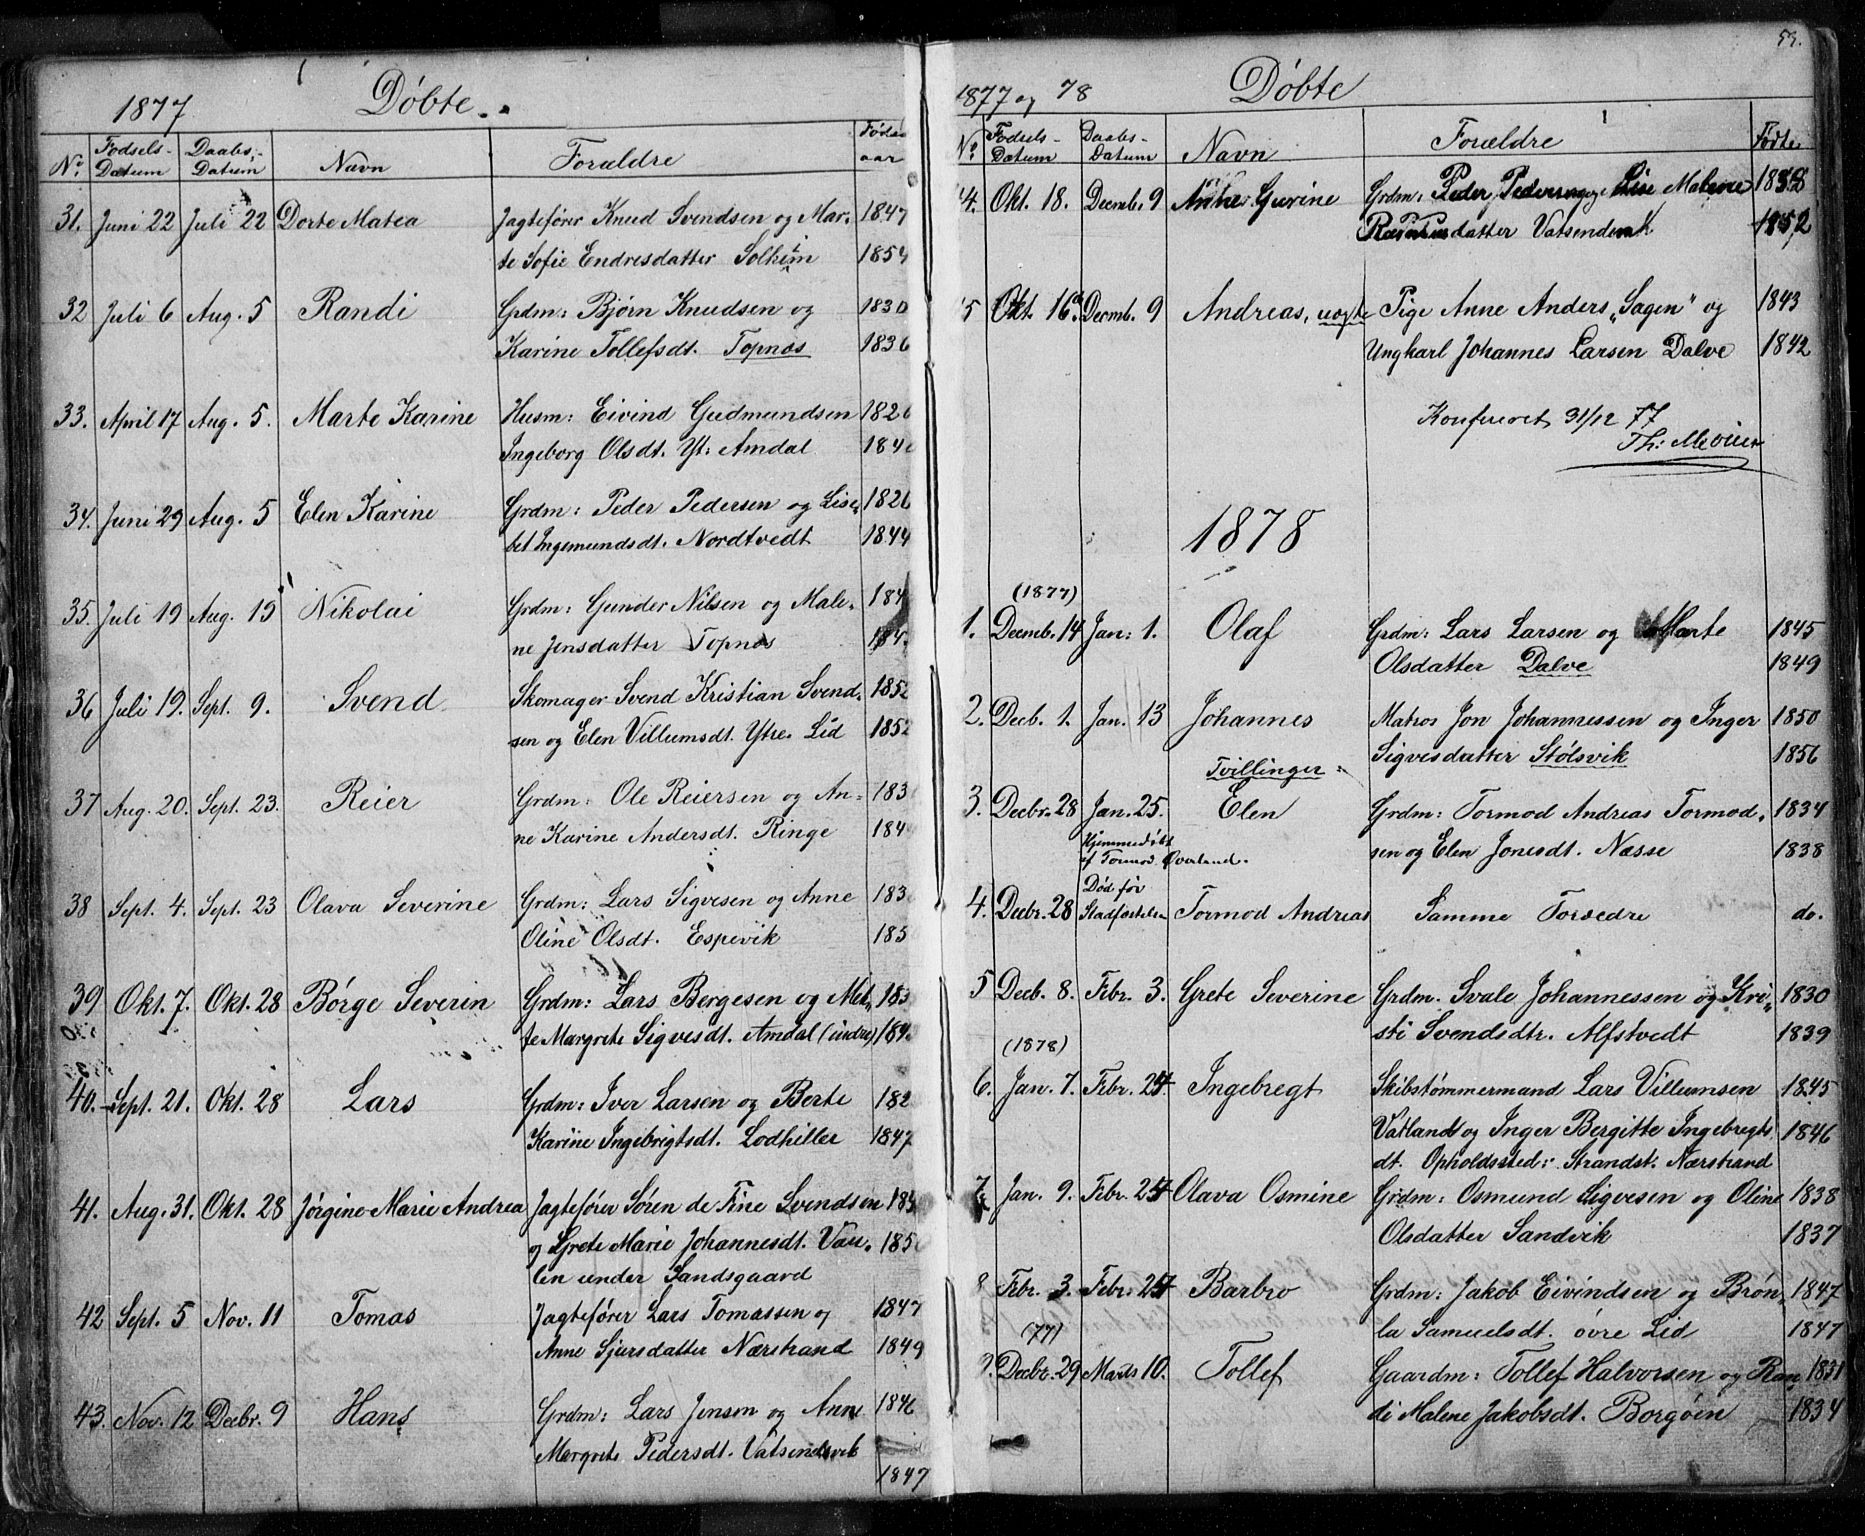 1877 Døbte.
No. Fødsels-Datum Daabs-Datum Navn Forældre Føds. aar
31. Juni 22 Juli 22 Dorte Matea Jagtefører Knud Svendsen og Mar- 1847
te Sofie Endresdatter Solheim 1854
32 Juli 6 Aug. 5 Randi Grdm: Bjørn Knudsen og 1830
Karine Tollefsdt. Topnæs 1836
33. April 17 Aug. 5. Marte Karine Husm: Eivind Gudmundsen 1826
Ingeborg Olsdt. Yt: Amdal
34. Juni 29 Aug. 5 Elen Karine Grdm: Peder Pedersen og Lise- 1826
bet Ingemundsdt. Nordtvedt 1844
35. Juli 19 Aug. 19 Nikolai Grdm: Gunder Nilsen og Male-
ne Jensdatter Topnæs
36 Juli 19. Sept. 9. Svend Skomager Svend Kristian Svend- 1852
sen og Elen Villumsdt. Ytre Lid 1852
37 Aug. 20. Sept. 23. Reier Grdm: Ole Reiersen og An-
ne Karine Andersdt. Ringe
38 Sept. 4. Sept. 23 Olava Severine Grdm: Lars Sigvesen og Anne
Oline Olsdt. Espevik
39 Okt. 7. Okt. 28 Børge Severin Grdm: Lars Bergesen og Met-
te Margrete Sigvesdt. Amdal (indre)
40. Sept. 21. Okt. 28 Lars Grdm: Iver Larsen og Berte
Karine Ingebrigtsdt. Lodhiller 1847
41. Aug. 31. Okt. 28 Jørgine Marie Andrea Jagtefører Søren de Fine Svendsen
og Grete Marie Johannesdt. Vau-
len under Sandsgaard
42 Sept. 5 Nov. 11 Tomas Jagtefører Lars Tomassen og 1847
Anne Sjursdatter Nærstrand 1849
43. Nov. 12 Decbr. 9 Hans Grdm: Lars Jensen og Anne 1846
Margrete Pedersdt. Vatsendvik 1847
53.
1877 og 78 Døbte
No. Fødsels-Datum Daabs-Datum Navn Forældre Fødte
4. Okt. 18. Decemb. 9 Anne Gurine Grdm: Peder Pedersen og Lise Malene
datter Vatsendvik 1852
5 Okt. 16 Decmb. 9 Andreas, uægte Pige Anne Anders „Sagen" og 1843
Ungkarl Johannes Larsen Dalve 1842
Konfereret 31/12 77
Th: Mevier
1878
(1877)
1. Decemb. 14 Jan: 1. Olaf Grdm: Lars Larsen og Marte 1845
Olsdatter Dalve 1849
2. Decb. 1. Jan. 13 Johannes Matros Jon Johannessen og Inger 1850
Sigvesdatter Stølsvik 1856
Tvillinger:
3. Decbr. 28 Jan. 25. Elen Grdm: Tormod Andreas Tormod- 1834
Hjemmedøbt
af Tormod Øverland. sen og Elen Jonesdt. Næsse 1838
Død før
4. Decbr. 28 Stadfæstelsen Tormod Andreas Samme Foræedre do.
5 Decb. 8. Febr. 3. Grete Severine Grdm. Svale Johannessen og Kri- 1830
sti Svendsdtr. Alfstvedt 1839
(1878)
6. Jan. 7. Febr. 24 Ingebregt Skibstømmermand Lars Villumsen 1845
Vatland og Inger Bergitte Ingebregts 1846
dt. Opholdssted: Strandst. Nærstrand
7. Jan. 9. Febr. 24 Olava Osmine Grdm: Osmund Sigvesen og Oline 1838
Olsdatter Sandvik 1837
8 Febr. 3. Febr. 24 Barbro Grdm: Jakob Eivindsen og Brøn- 1847
la Samuelsdt. øvre Lid 1847
(77)
9. Decbr. 29 Marts 10. Tollef Gaardm: Tollef Halvorsen og Ran- 1831
di Malene Jakobsdt. Borgøen 1834